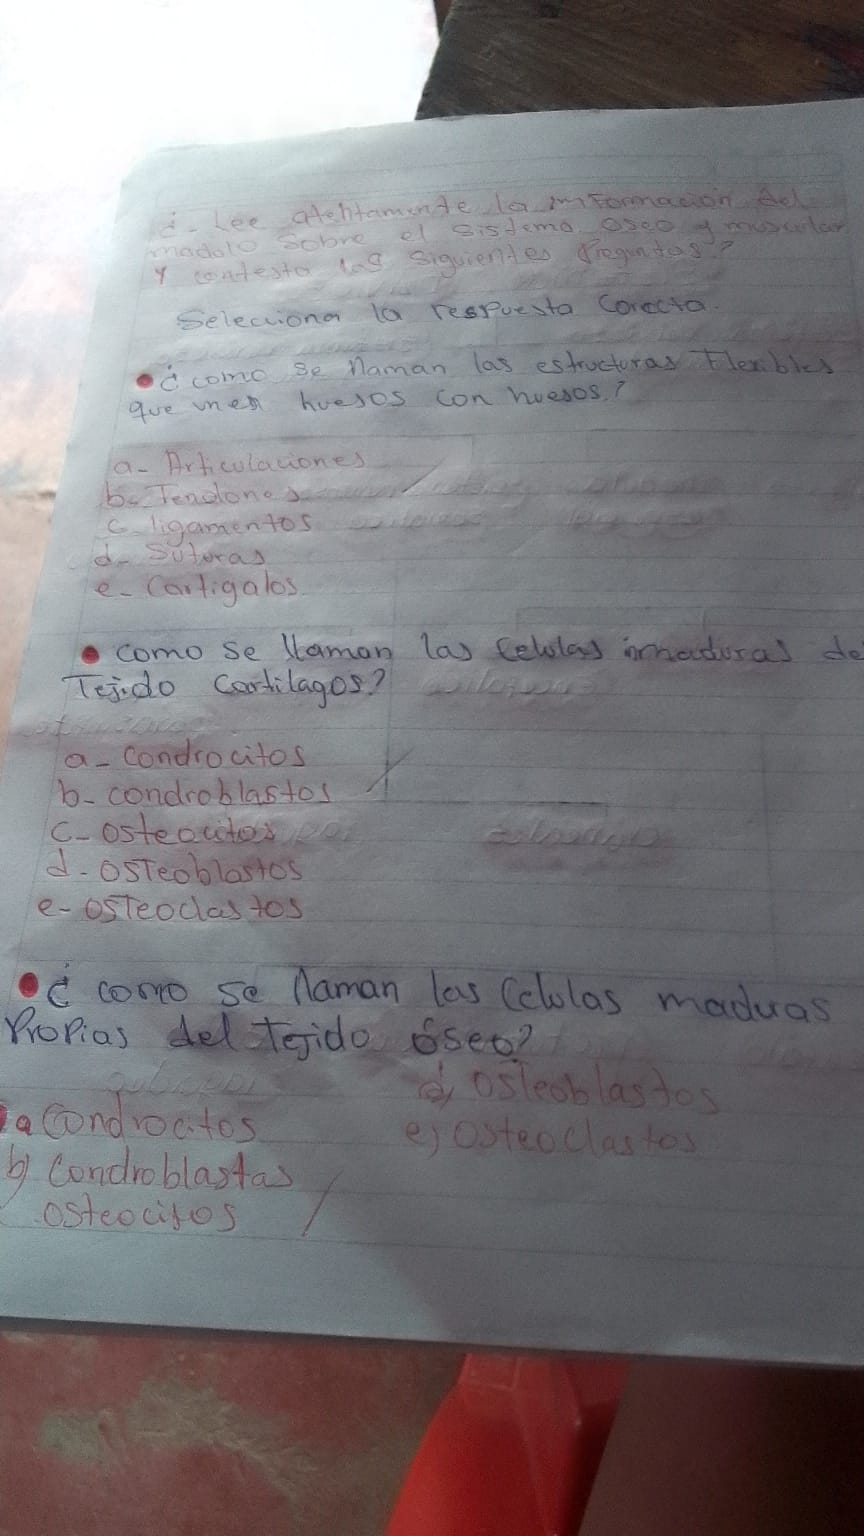 ¿- Lee atentamente la informacion del
madolo sobre el sistema oseo y muscular
y contesta las siguientes preguntas?
Seleciona la respuesta corecta.
• ¿como se llaman las estructuras flexibles
que unen huesos con huesos?
a- Articulaciones
b- Tendones
c- ligamentos
d- Suturas
e- Cartigalos
• como se llaman las celulas inmaduras de
Tejido cartilagos?
a- condrocitos
b- condroblastos
c- osteocitos
d- osteoblastos
e- osteoclastos
• ¿ como se llaman las celulas maduas
Propias del Tejido óseo?
a Condrocitos
b) Condroblastas
osteocitos
d) osteoblastos
e) osteoclastos